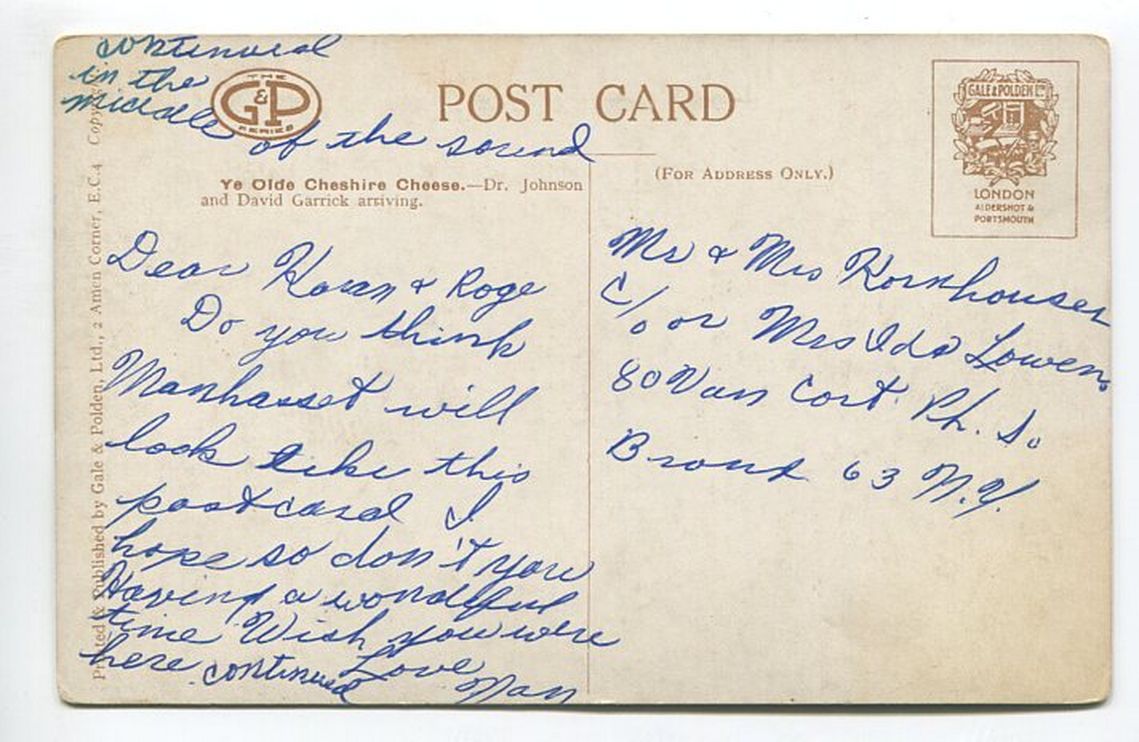 continued
in the
middle of the sound
THE
G&P
SERIES
POST CARD
(For Address Only.)
GALE & POLDEN LTD
LONDON
ALDERSHOT &
PORTSMOUTH
Ye Olde Cheshire Cheese.—Dr. Johnson
and David Garrick arriving.
Printed & Published by Gale & Polden, Ltd., 2 Amen Corner, E.C.4 Copy
Dear Karen & Roge
Do you think
Manhasset will
look like this
postcard I
hope so don't you
Having a wonderful
time Wish you were
here continued Love
Nan
Mr & Mrs Kornhouser
c/o or Mrs Ida Lowen
80 Van Cort Pk. So
Bronx 63 N.Y.